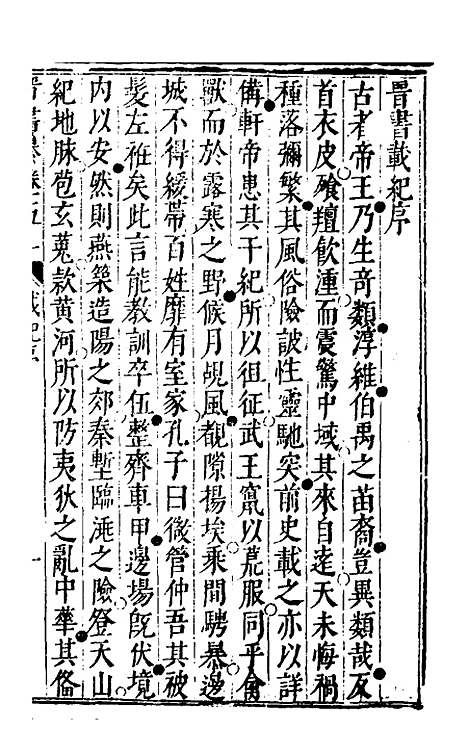 晉書載紀序
古者帝王乃生奇類淳維伯禹之苗裔豈異類哉反
首衣皮飱羶飲湩而震驚中域其來自遠天未悔禍
種落彌繁其風俗險詖性靈馳突前史載之亦以詳
備軒帝患其干紀所以徂征武王竄以荒服同乎禽
獸而於露寒之野候月覘風覩隙揚埃乘間騁暴邊
城不得緩帶百姓靡有室家孔子曰微管仲吾其被
髮左袵矣此言能教訓卒伍整齊車甲邊場旣伏境
內以安然則燕築造陽之郊秦塹臨洮之險登天山
紀地脉苞玄菟款黄河所以防夷狄之亂中華其偹